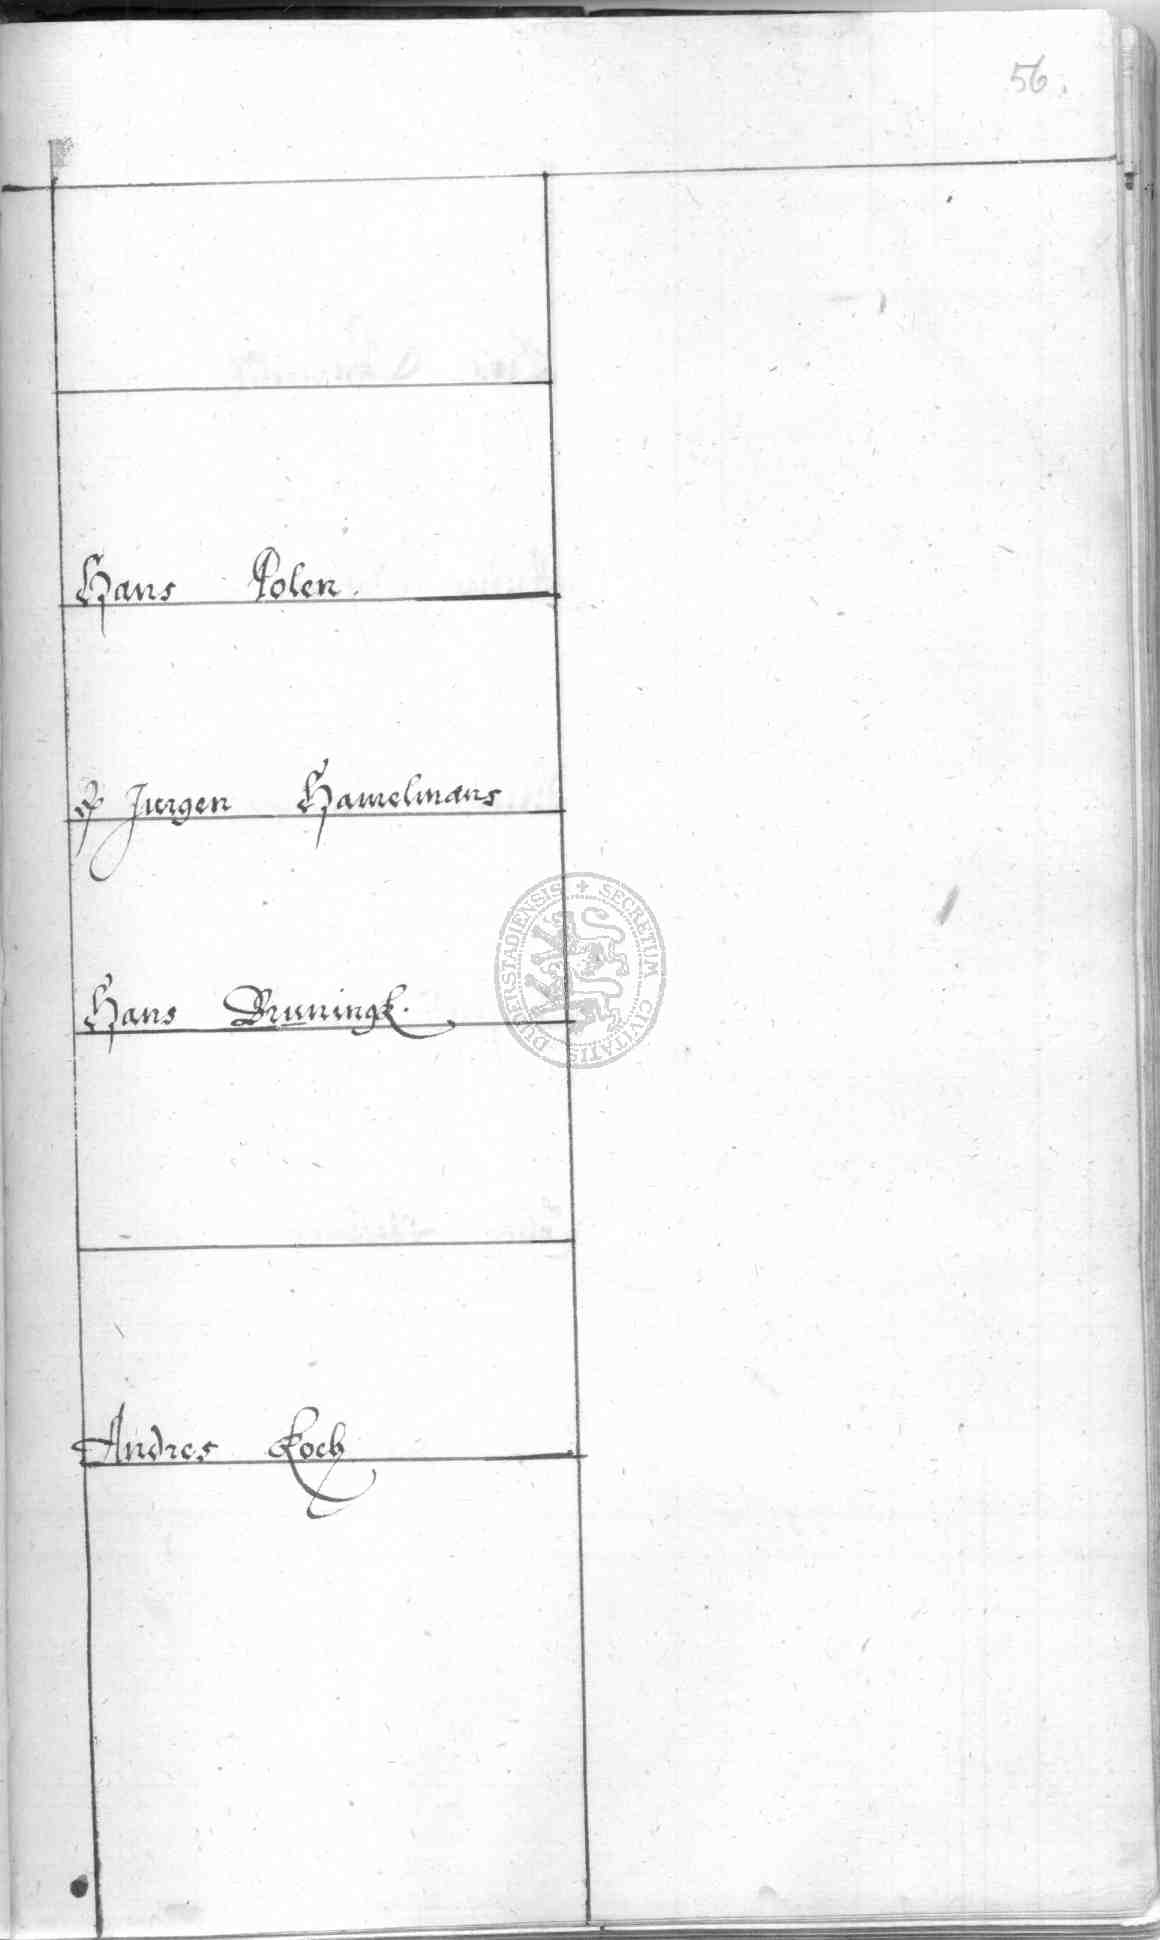 56.
Hans Polen.
Jurgen Hamelmans
Hans Bruningk.
SECRETUM CIVITATIS DUDERSTADIENSIS
Andres Koch